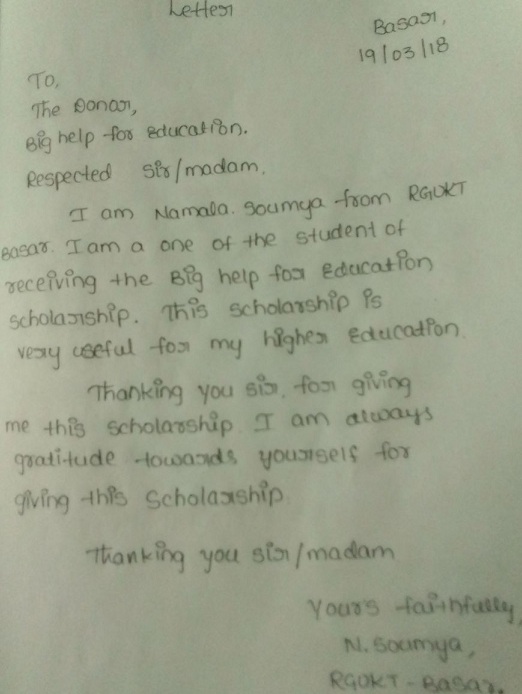 Letter
Basar,
19/03/18
To,
The Donar,
Big help for Education.
Respected Sir/madam.
I am Namala. Soumya from RGUKT
Basar. I am a one of the student of
receiving the Big help for Education
scholarship. This scholarship is
very useful for my higher Education.
Thanking you sir. for giving
me this scholarship I am always
gratitude towards yourself for
giving this Scholarship.
Thanking you sir/madam
Yours faithfully,
N. Soumya,
RGUKT - Basar.